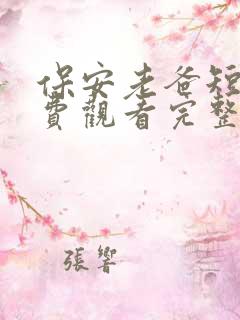 保安老爸短
費觀看完整
張響